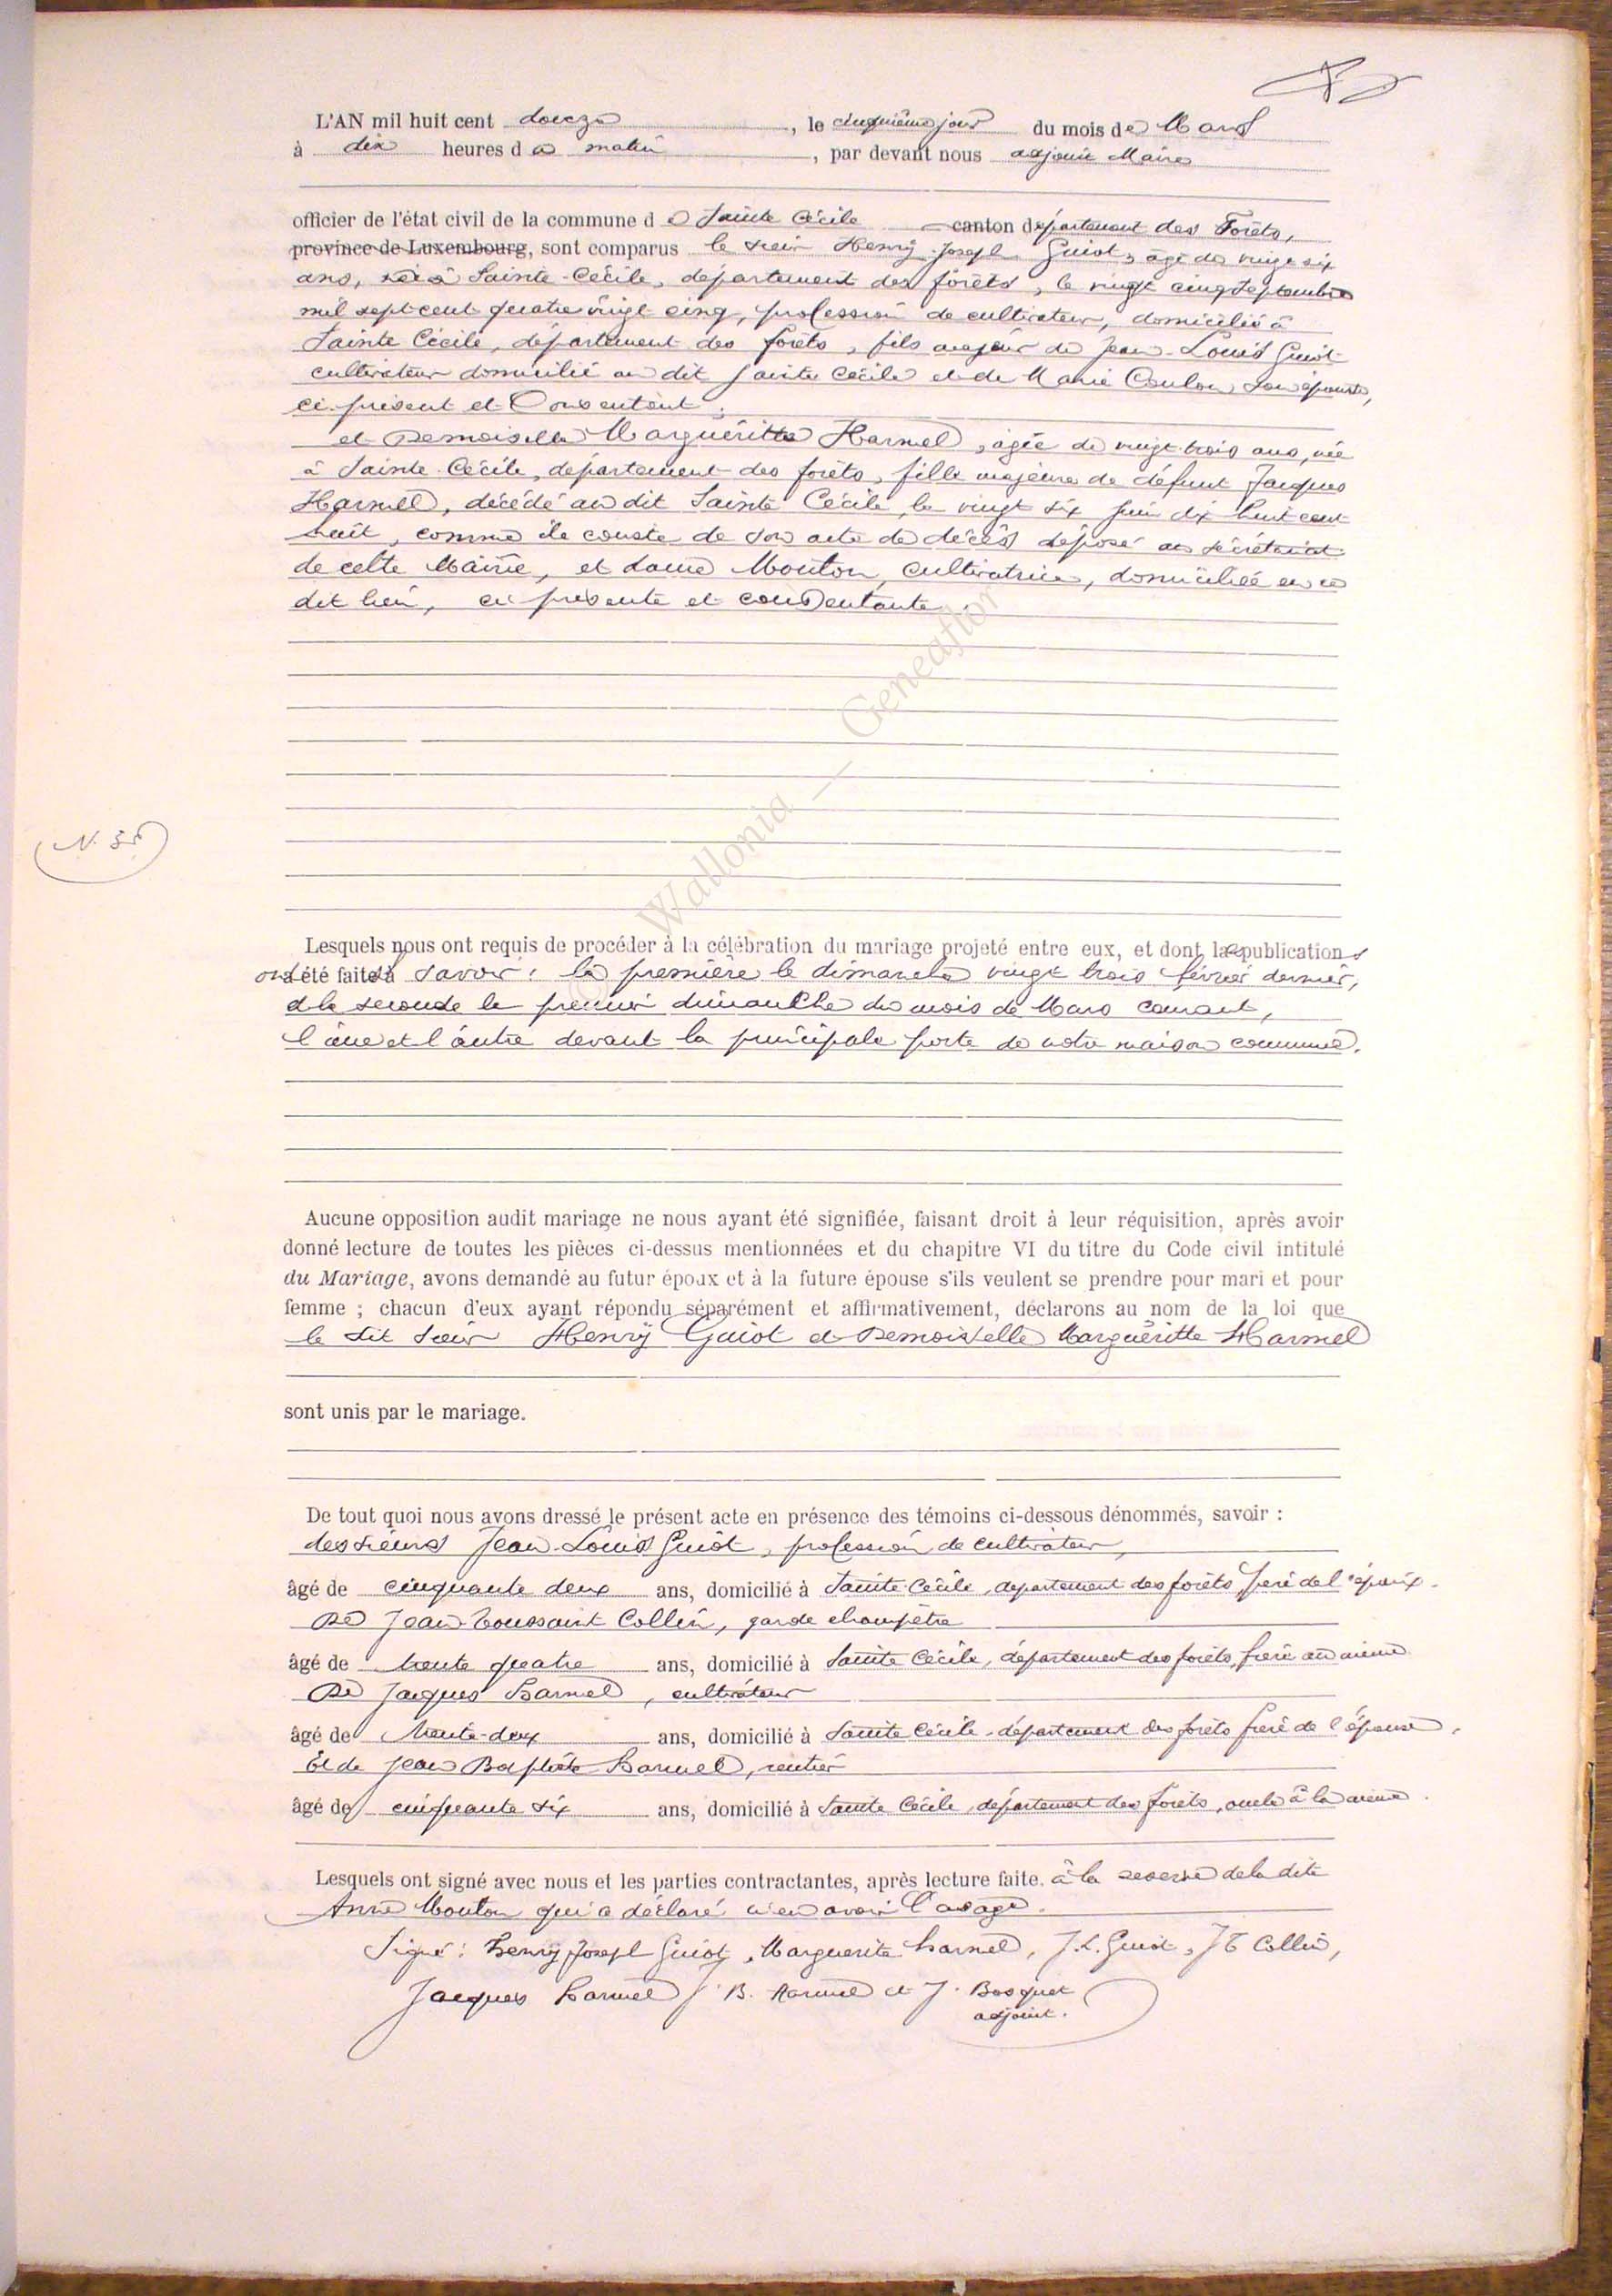 L'AN mil huit cent douze, le cinquième jour du mois de Mars
à dix heures du matin, par devant nous adjoint Maire
officier de l'état civil de la commune de Sainte Cécile canton département des Forêts,
province de Luxembourg, sont comparus le sieur Henry Joseph Guiot, âgé de vingt six
ans, né à Sainte-Cécile, département des forêts, le vingt cinq septembre
mil sept cent quatre vingt cinq, profession de cultivateur, domicilié à
Sainte Cécile, département des forêts, fils majeur de Jean-Louis Guiot
cultivateur domicilié au dit Sainte Cécile et de Marie Coulon, son épouse,
ci-présent et Consentant;
et Demoiselle Marguéritte Harmel, âgée de vingt-trois ans, née
à Sainte-Cécile, département des forêts, fille majeure de défunt Jacques
Harmel, décédé au dit Sainte Cécile, le vingt six juin dix huit cent
huit, comme il conste de son acte de décès déposé au sécrétariat
de cette Mairie, et dame Mouton, cultivatrice, domiciliée en ce
dit lieu, ci présente et consentante.
Wallonia — Geneaflor
N. 35
Lesquels nous ont requis de procéder à la célébration du mariage projeté entre eux, et dont les publications
ont été faites à savoir: la première le dimanche vingt trois février dernier,
et la seconde le premier dimanche du mois de Mars courant,
l'une et l'autre devant la principale porte de notre maison commune.
Aucune opposition audit mariage ne nous ayant été signifiée, faisant droit à leur réquisition, après avoir
donné lecture de toutes les pièces ci-dessus mentionnées et du chapitre VI du titre du Code civil intitulé
du Mariage, avons demandé au futur époux et à la future épouse s'ils veulent se prendre pour mari et pour
femme ; chacun d'eux ayant répondu séparément et affirmativement, déclarons au nom de la loi que
le dit sieur Henry Guiot et Demoiselle Marguéritte Harmel
sont unis par le mariage.
De tout quoi nous avons dressé le présent acte en présence des témoins ci-dessous dénommés, savoir :
des sieurs Jean-Louis Guiot, profession de cultivateur,
âgé de cinquante deux ans, domicilié à Sainte-Cécile, département des forêts, père de l'époux.
De Jean-Toussaint Collin, garde champêtre
âgé de trente quatre ans, domicilié à Sainte Cécile, département des forêts,
De Jacques Harmel, cultivateur
âgé de trente-deux ans, domicilié à Sainte Cécile, département des forêts frère de l'épouse.
Et de Jean Baptiste Harmel, rentier
âgé de cinquante six ans, domicilié à Sainte Cécile, département des forêts, oncle à la même.
Lesquels ont signé avec nous et les parties contractantes, après lecture faite. à la reserve de la dite
Anne Mouton qui a déclaré n'en avoir l'usage.
Signé: Henry Joseph Guiot, Marguerite Harmel, J.L. Guiot, J T Collin,
Jacques Harmel J. B. Harmel et J. Bosquet
adjoint.